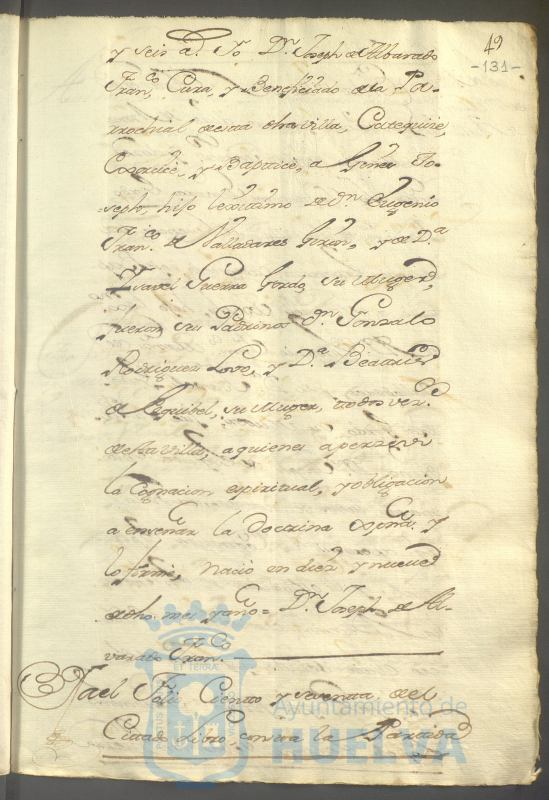 49
-131-
y seis a.s Yo D.n Joseph de Albarado
Fran.co Cura, y Beneficiado de la Pa-
rrochial de esta dha villa, Catequize,
y Baptice, a Gines Jo-
seph, hijo lexitimo de D.n Eugenio
Fran.co de Valladares Giron, y de D.a
Ysavel Guerra Gordo, su Muger,
fueron sus Padrinos D.n Gonzalo
Rodriguez Lobo, y D.a Beatriz
de Esquibel, su Muger, todos vez.os
de esta Villa, a quienes aperzevi
la Cognacion espiritual, y obligacion
a enseñar la Doctrina Xpna. y
lo firme, nacio en diez y nueve
de dho. mes y año = D.n Joseph de Al-
varado Fran.co
Ciento y setenta del
Citado libro, consta la Partida
PORTUS
ET TERRAE
Ayuntamiento de
HUELVA